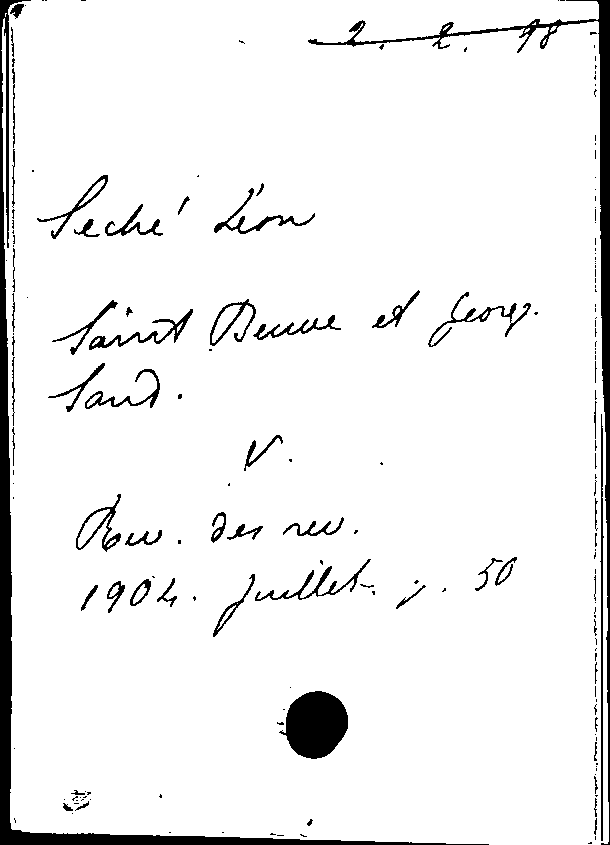 2. 2. 98
Séché Léon
Saint Beuve et Georg.
Sand.
V.
Rev. des rev.
1904. Juillet. p. 50